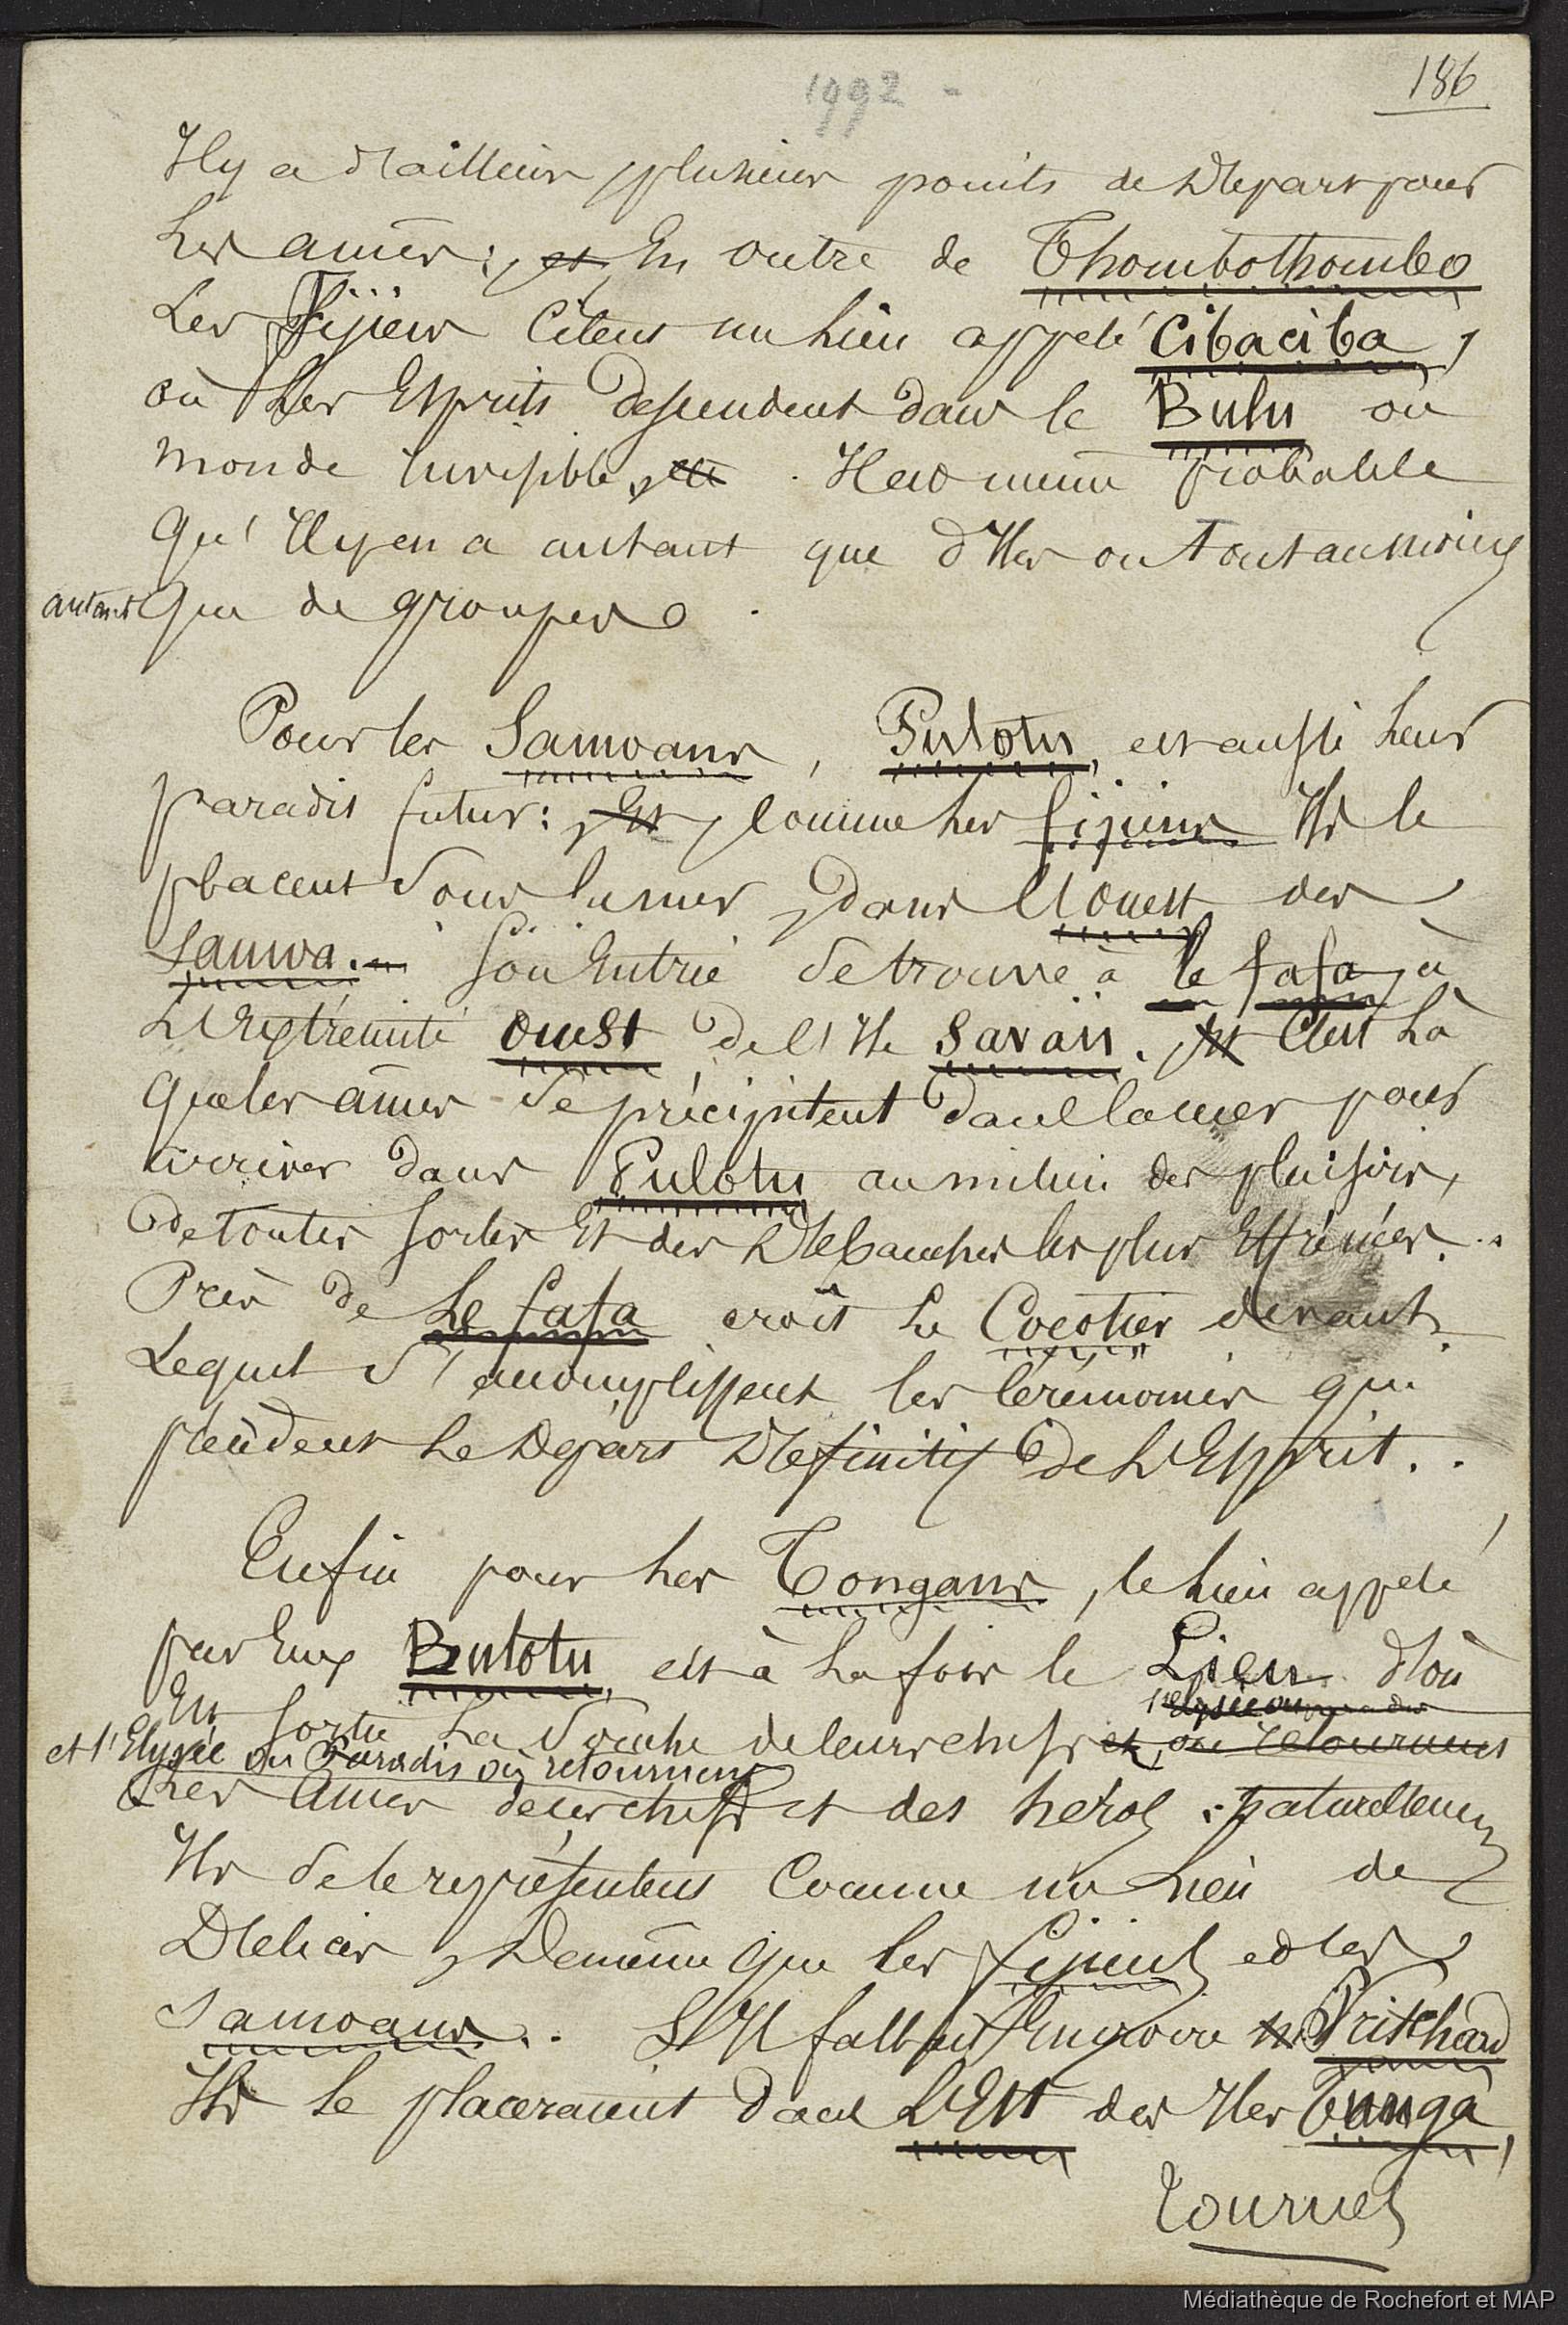 1992 -
186
Il y a d'ailleurs plusieurs points de Départ pour
Les âmes ; et En outre de Thombothombo
Les Fijiens Citent un Lieu appelé Cibaciba,
où Les Esprits descendent dans le Bulu ou
monde invisible, et . Il est même probable
Qu' Il y en a autant que d'Iles ou tout au moins
autant Que de groupes.
Pour les Samoans, Pulotu, est aussi leur
paradis futur : Et Comme les fijiens Ils le
placent Sous la mer, dans l'Ouest des
Samoa. Son Entrée Se trouve à le fafa, à
L'Extrémité Ouest de l'Ile Savaii. Et C'est Là
Que les âmes Se précipitent dans la mer pour
arriver dans Pulotu au milieu des plaisirs,
De toutes Sortes Et des Débauches les plus Effrénées...
Près de Le fafa croît Le Cocotier devant
Lequel S'accomplissent les Cérémonies qui
précèdent Le Départ Définitif De L'Esprit..
Enfin pour les Tongans, le Lieu appelé
par Eux Bulotu, est à La fois le Lieu d'où
l'Elysée ou paradis
Est Sortie La Souche de leurs chefs et où retournent
et l'Elysée ou Paradis où retournent
Les âmes des chefs et des héros : naturellement
Ils Se le représentent Comme un Lieu de
Délices, De même Que les fijiens et les
Samoans.. S'Il fallait En croire Pritchard
Ils le placeraient dans L'Est des Iles Tunga,
Tournez
Médiathèque de Rochefort et MAP